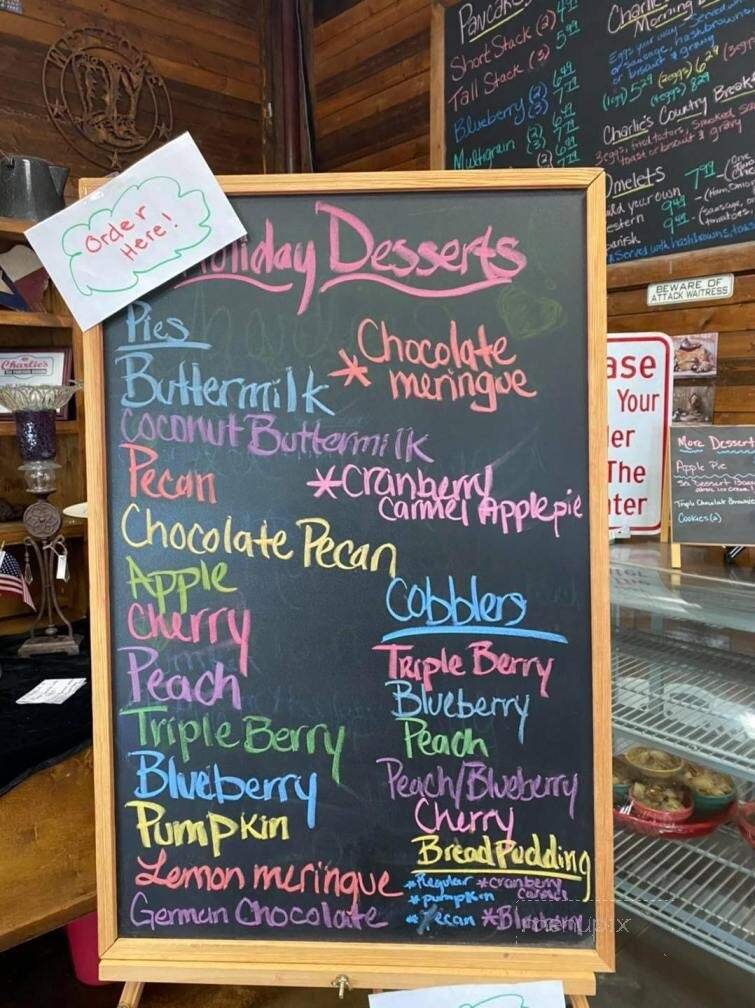 Order
Here!
Holiday Desserts
Pies
Buttermilk
Coconut Buttermilk
Pecan
Chocolate Pecan
Apple
Cherry
Peach
Triple Berry
Blueberry
Pumpkin
Lemon meringue
German Chocolate
*Chocolate
meringue
*Cranberry
Carmel Applepie
Cobblers
Triple Berry
Blueberry
Peach
Peach/Blueberry
Cherry
Bread Pudding
*Regular *Cranberry
Carmel
*pumpkin
*Pecan *Blueberry
menupix
Pancakes
Short Stack (2) 4.99
Tall Stack (3) 5.99
Blueberry (2) 6.49
(3) 7.79
Multigrain (2) 6.49
(3) 7.79
Charlie's
Morning
Eggs your way - Served w/
or sausage, hashbrowns,
or biscuit & gravy
(1 egg) 5.29 (2 eggs) 6.29
Charlie's Country Break
3 eggs, fried tators, smoked
toast or biscuit & gravy
Omelets
your own 7.99
estern 9.49 - (Ham,
anish 9.49 - (sausage,
Served with hashbrowns, toast
BEWARE OF
ATTACK WAITRESS
ase
Your
er
The
ter
Charlie's
More Dessert
Apple Pie
Triple Chocolate Brownie
Cookies (2)